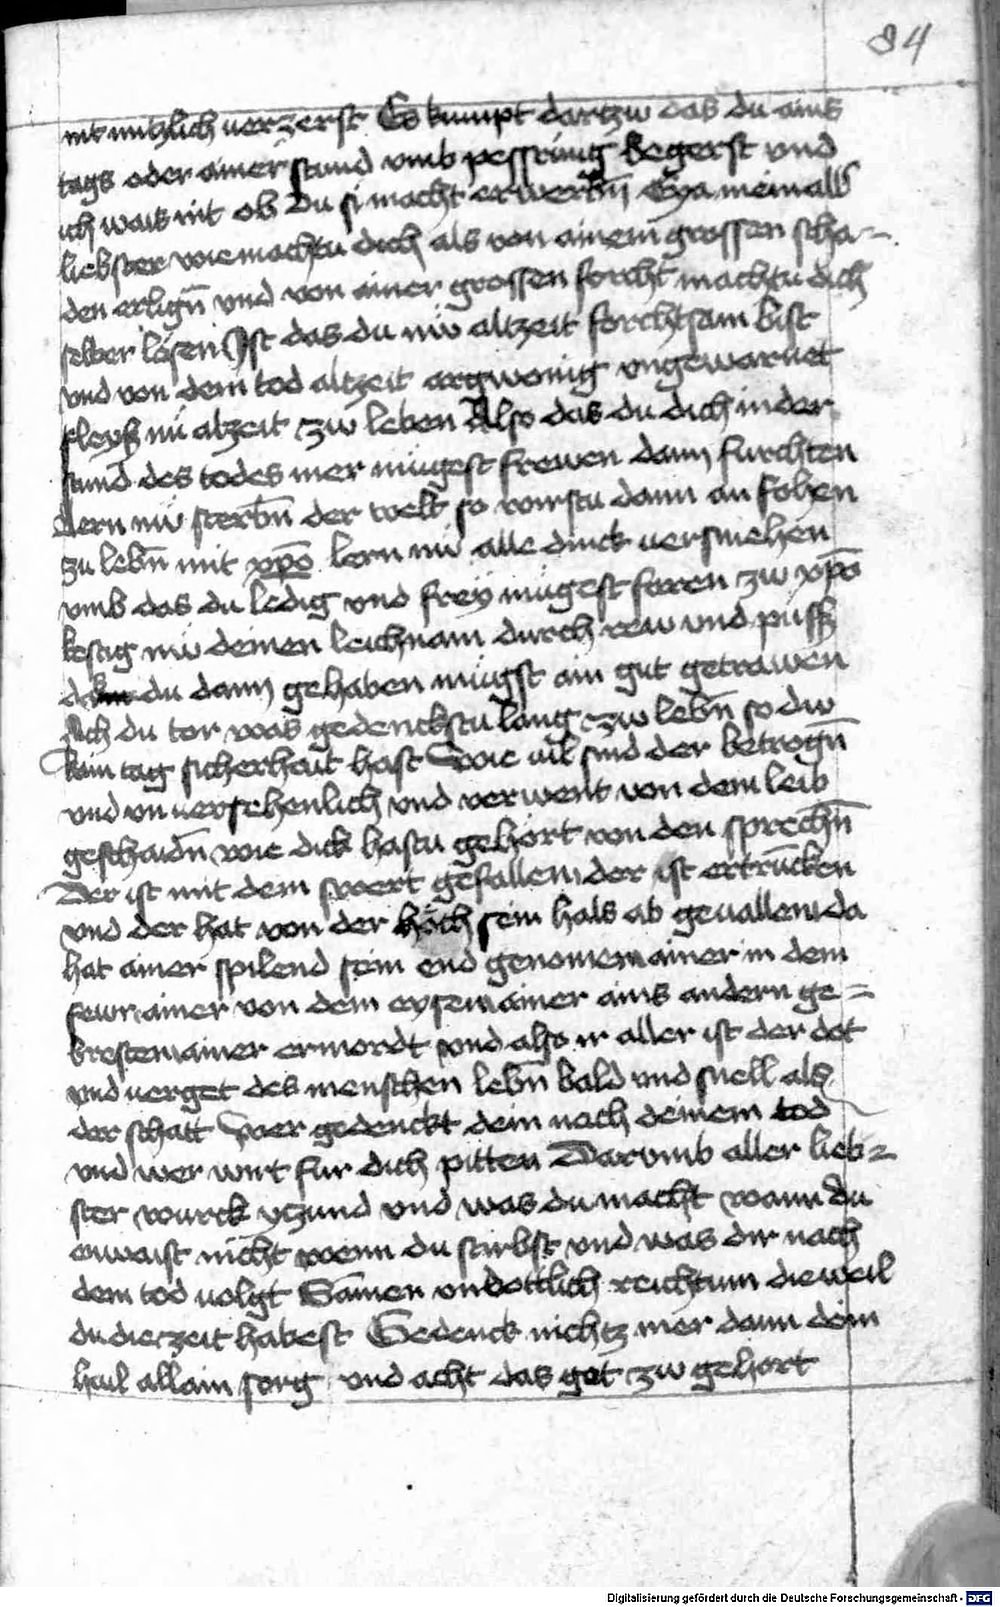 84
nit nutzlich uerzerst Es kumpt dartzw das du ains
tags oder ainer stund vmb pessrung begerst vnd
ich wais nit ob du si macht erwerbn̄ Eya mein all
liebster wie machtu dich als von ainem grossen scha=
den erlign̄ vnd von ainer grossen forcht machtu dich
selber lösen Ist das du nw altzeit forchtsam bist
vnd von dem tod altzeit argwonig vngewarnet
fleyß nu alzeit zw leben Also das du dich in der
stund des todes mer mugest frewen dann furchten
Lern nw sterbn̄ der welt so wirstu dann an fohen
zu lebn̄ mit xp̄o lern nw alle dinck uersmehen
vmb das du ledig vnd frey mugest faren zw xp̄o
kestig nw deinen leichnam durch rew vnd puß
du dann gehaben mugst ain gut getrawen
Ach du tor was gedenckstu lang zw lebn̄ so dw
kain tag sicherhait hast Wie uil sind der betrogn̄
vnd vnuersehenlich vnd verwent von dem leib
geschaidn̄ wie dick hastu gehort von den sprechn̄
Der ist mit dem swert gefallem der ist ertruncken
vnd der hat von der höch sein hals ab geuallem da
hat ainer spilend sein end genomem ainer in dem
fewr ainer von dem eysem ainer ains andern ge=
brestem ainer ermordt vnd also ir aller ist der dot
vnd uerget des menschen lebn̄ bald vnd snell als
der schatt Wer gedenckt dein nach deinem tod
vnd wer wirt fur dich pitten Darvmb aller lieb=
ster wurck ytzund vnd was du macht wann du
enwaist nicht wenn du stirbst vnd was dir nach
dem tod uolgt Samen vndottlich reichtum dieweil
du die zeit habest Gedenck nichtz mer dann dein
hail allain sorg vnd acht das got zw gehort
Digitalisierung gefördert durch die Deutsche Forschungsgemeinschaft - DFG